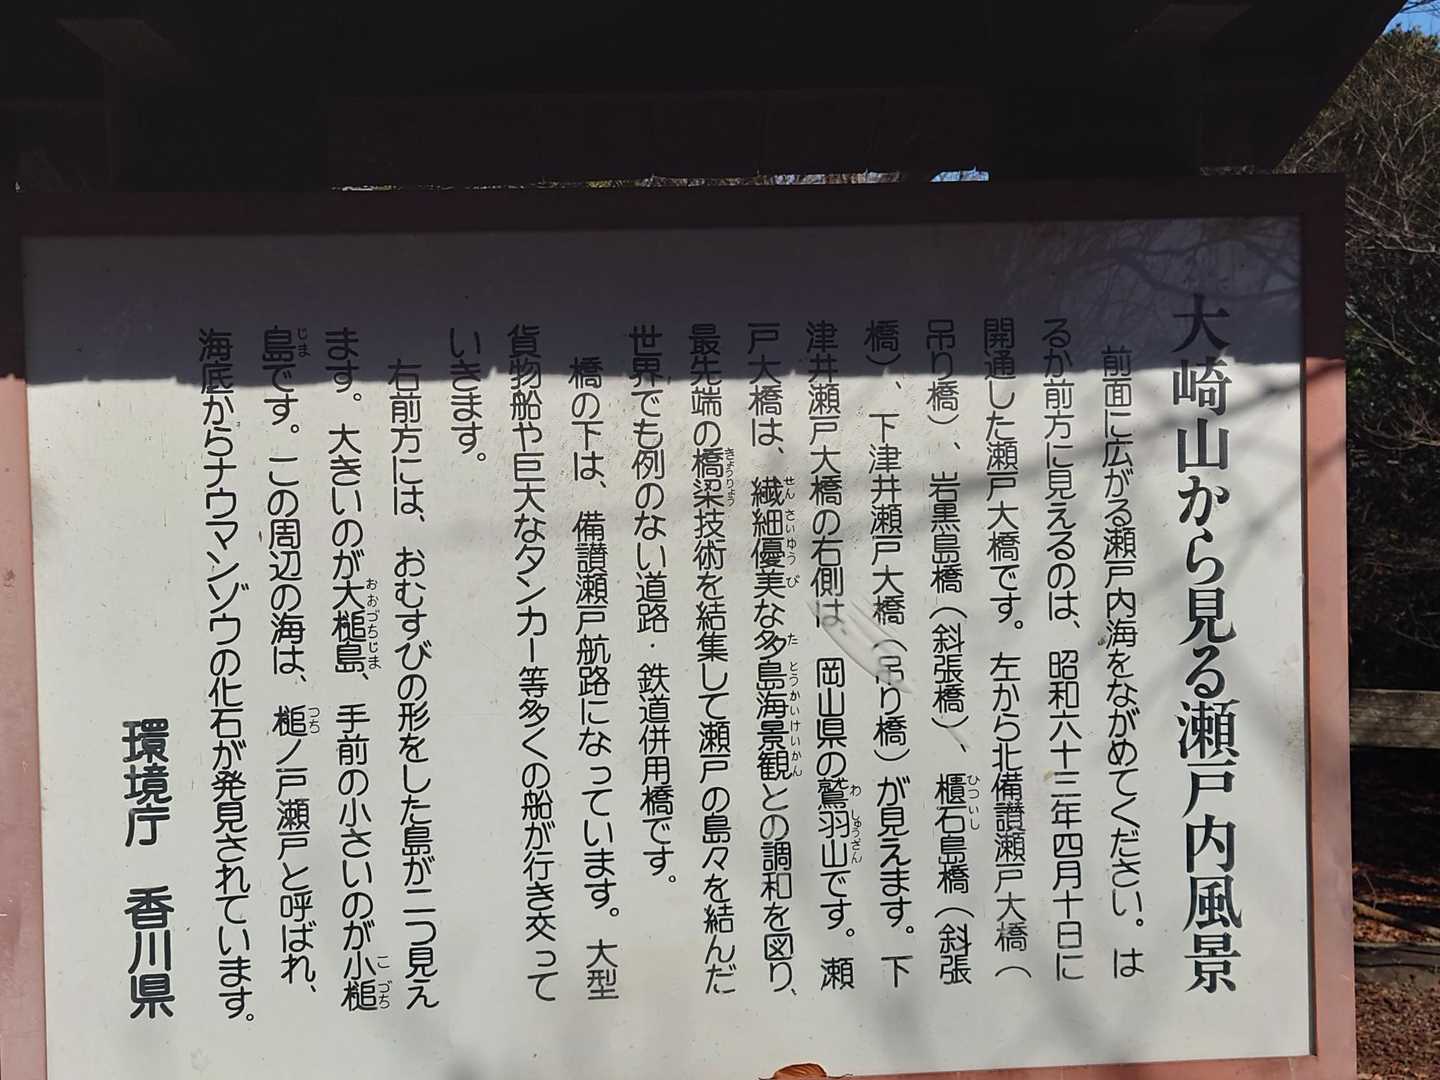 大崎山から見る瀬戸内風景
前面に広がる瀬戸内海をながめてください。は
るか前方に見えるのは、昭和六十三年四月十日に
開通した瀬戸大橋です。左から北備讃瀬戸大橋（
吊り橋）、岩黒島橋（斜張橋）、櫃石島橋（斜張
橋）、下津井瀬戸大橋（吊り橋）が見えます。下
津井瀬戸大橋の右側は、岡山県の鷲羽山です。瀬
戸大橋は、繊細優美な多島海景観との調和を図り、
最先端の橋梁技術を結集して瀬戸の島々を結んだ
世界でも例のない道路・鉄道併用橋です。
橋の下は、備讃瀬戸航路になっています。大型
貨物船や巨大なタンカー等多くの船が行き交って
いきます。
右前方には、おむすびの形をした島が二つ見え
ます。大きいのが大槌島、手前の小さいのが小槌
島です。この周辺の海は、槌ノ戸瀬戸と呼ばれ、
海底からナウマンゾウの化石が発見されています。
環境庁　香川県